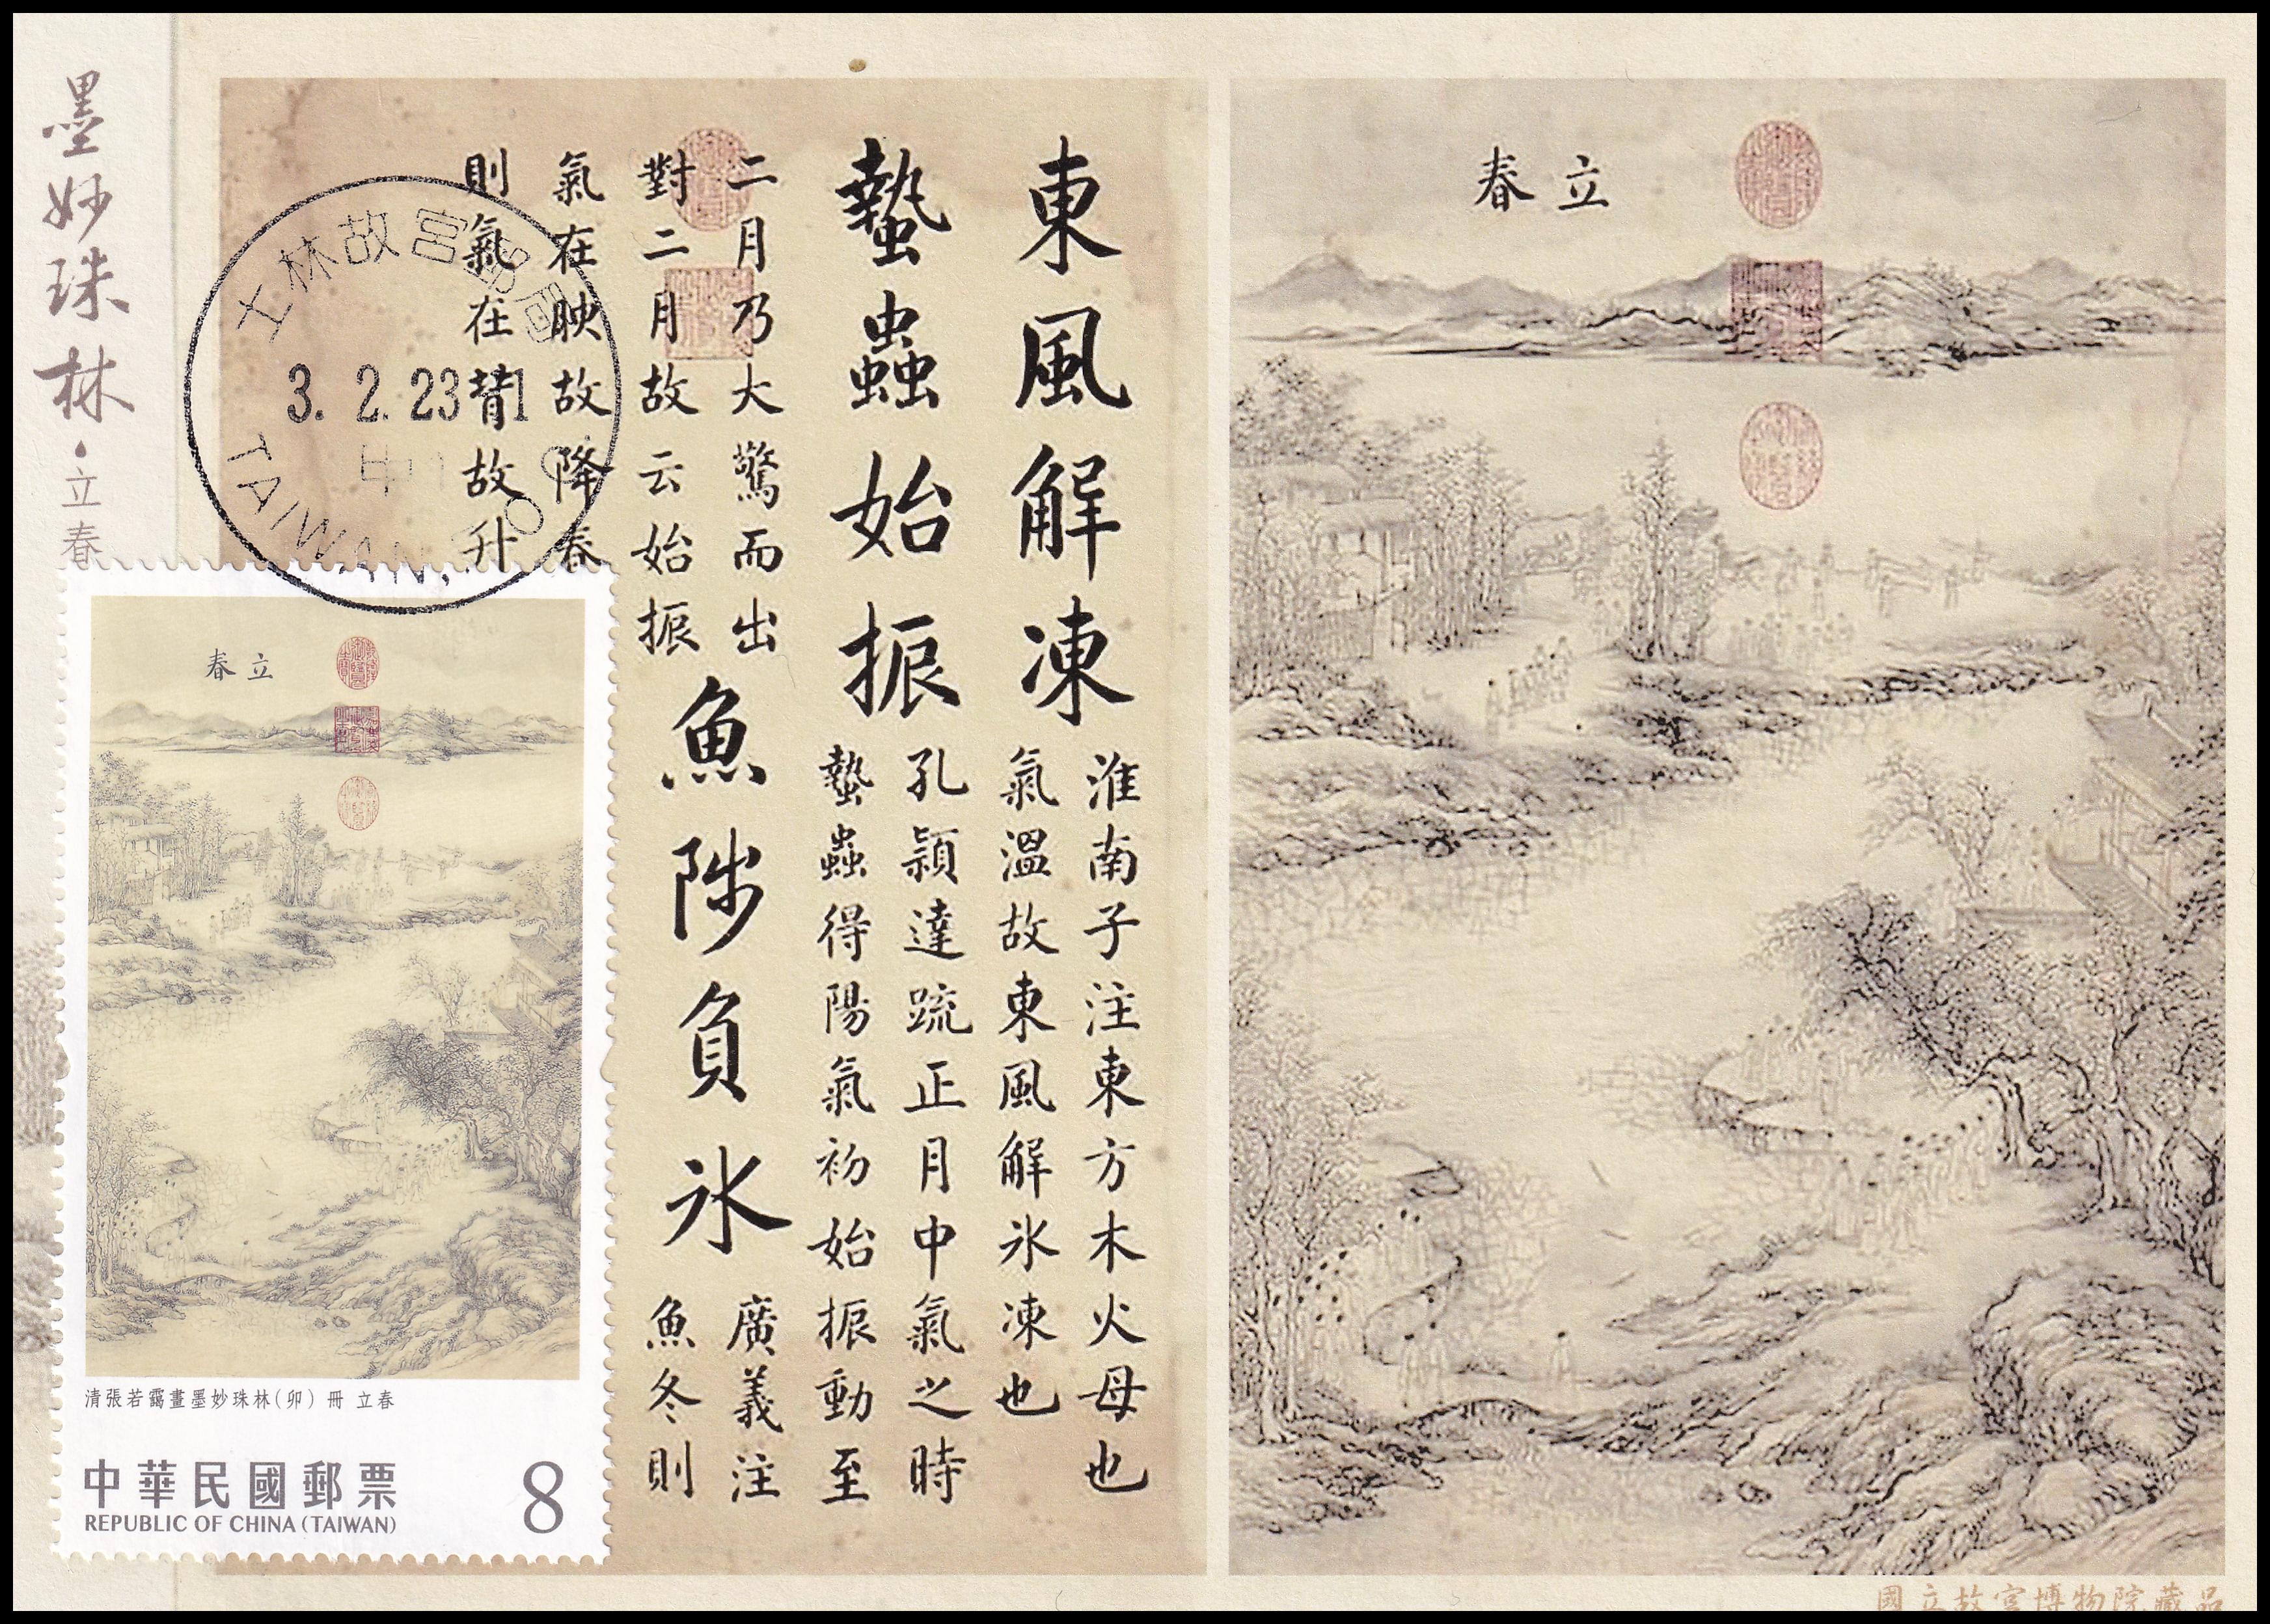 墨妙珠林·立春
東風解凍
淮南子注東方木火母也
氣溫故東風解氷凍也
蟄蟲始振
孔穎達疏正月中氣之時
蟄蟲得陽氣初始振動至
二月乃大驚而出
對二月故云始振
魚陟負氷
廣義注
魚冬則
氣在故降春
則氣在故升
立春
士林故宮郵局
3. 2. 23
TAIWAN
立春
清張若靄畫墨妙珠林(卯) 冊 立春
中華民國郵票
REPUBLIC OF CHINA (TAIWAN)
8
國立故宮博物院藏品